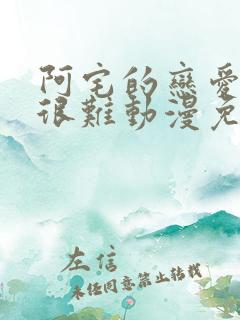 阿宅的戀愛
很難動漫免
左信
未经同意禁止转载